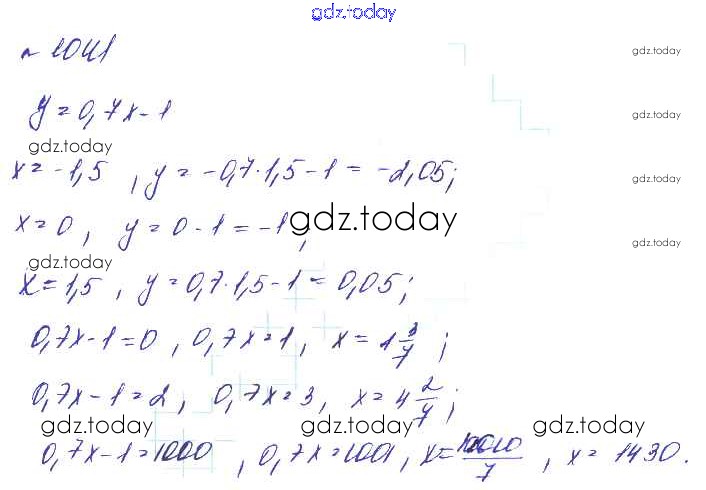 gdz.today
№ 1041
gdz.today
y = 0,7x - 1
gdz.today
gdz.today
x = -1,5 , y = -0,7·1,5 - 1 = -2,05;
gdz.today
x = 0 , y = 0 - 1 = -1 ;
gdz.today
gdz.today
gdz.today
x = 1,5 , y = 0,7·1,5 - 1 = 0,05 ;
0,7x - 1 = 0 , 0,7x = 1 , x = 1 3/7 ;
0,7x - 1 = 2 , 0,7x = 3 , x = 4 2/7 ;
gdz.today gdz.today gdz.today
0,7x - 1 = 1000 , 0,7x = 1001 , x = 10010/7 , x = 1430.